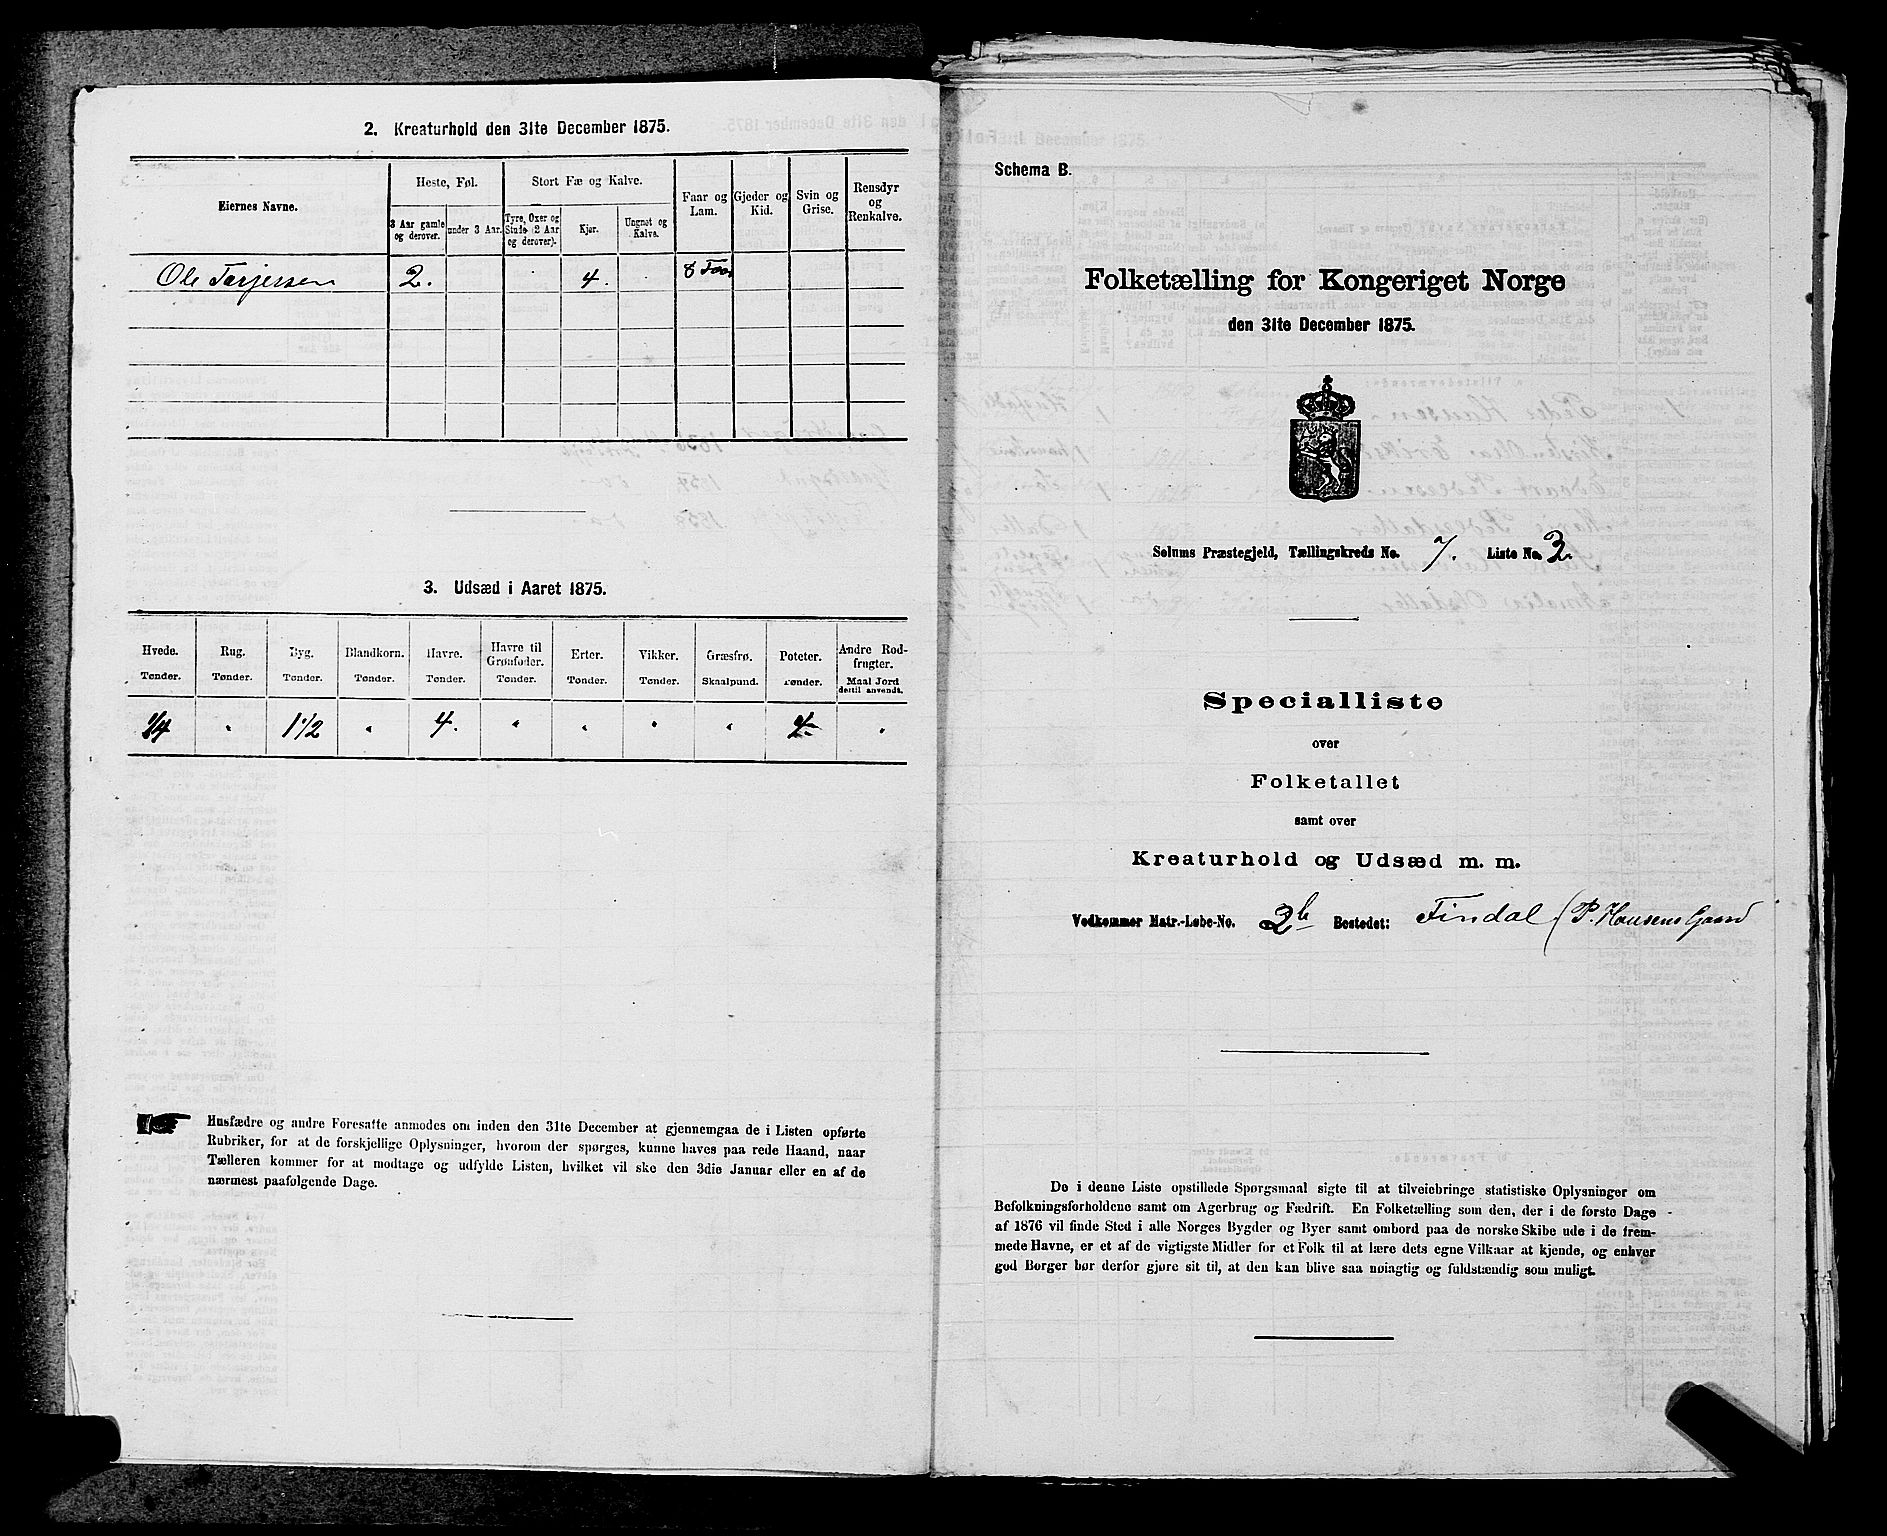 2. Kreaturhold den 31te December 1875.
Eiernes Navne.
Heste, Føl.
Stort Fæ og Kalve.
Faar og Lam.
Gjeder og Kid.
Svin og Grise.
Rensdyr og Renkalve.
3 Aar gamle og derover.
under 3 Aar.
Tyre, Oxer og Stude (2 Aar og derover).
Kjør.
Ungnøt og Kalve.
Ole Terjersen 2. 4. 8 Faar
3. Udsæd i Aaret 1875.
Hvede. Rug. Byg. Blandkorn. Havre. Havre til Grønfoder. Erter. Vikker. Græsfrø. Poteter. Andre Rodfrugter.
Tønder. Tønder. Tønder. Tønder. Tønder. Tønder. Tønder. Tønder. Skaalpund. Tønder. Maal Jord dertil anvendt.
1/4 " 1 1/2 " 4. " " " " 4 "
Husfædre og andre Foresatte anmodes om inden den 31te December at gjennemgaa de i Listen opførte
Rubriker, for at de forskjellige Oplysninger, hvorom der spørges, kunne haves paa rede Haand, naar
Tælleren kommer for at modtage og udfylde Listen, hvilket vil ske den 3die Januar eller en af de
nærmest paafølgende Dage.
Schema B.
Folketælling for Kongeriget Norge
den 31te December 1875.
Solums Præstegjeld, Tællingskreds No. 7. Liste No. 3.
Specialliste
over
Folketallet
samt over
Kreaturhold og Udsæd m. m.
Vedkommer Matr.-Løbe-No. 2b Bostedet: Findal (P. Hansens Gaard
De i denne Liste opstillede Spørgsmaal sigte til at tilveiebringe statistiske Oplysninger om
Befolkningsforholdene samt om Agerbrug og Fædrift. En Folketælling som den, der i de første Dage
af 1876 vil finde Sted i alle Norges Bygder og Byer samt ombord paa de norske Skibe ude i de frem-
mede Havne, er et af de vigtigste Midler for et Folk til at lære dets egne Vilkaar at kjende, og enhver
god Borger bør derfor gjøre sit til, at den kan blive saa nøiagtig og fuldstændig som muligt.